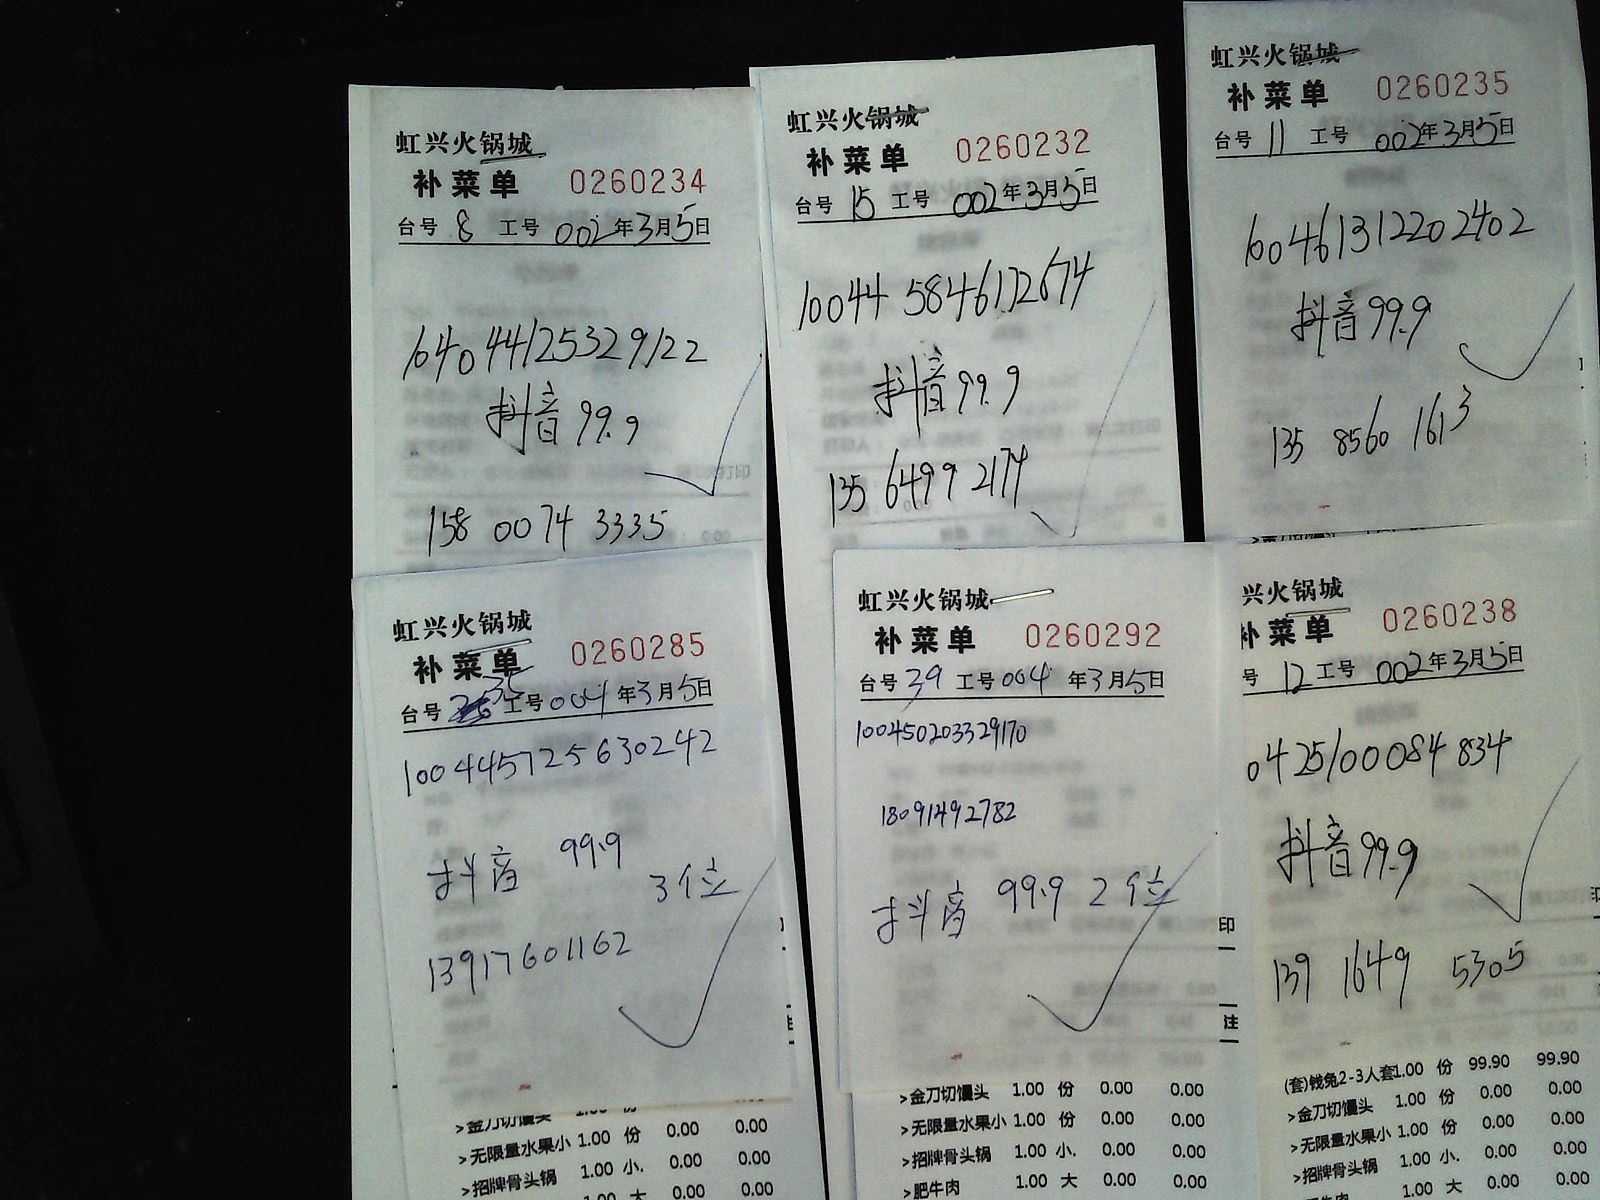 虹兴火锅城
补菜单 0260234
台号 8 工号 002 年 3 月 5 日
164044125329122
抖音 99.9
158 0074 3335
虹兴火锅城
补菜单 0260232
台号 15 工号 002 年 3 月 5 日
10044 5846172674
抖音 99.9
135 6499 2174
虹兴火锅城
补菜单 0260235
台号 11 工号 002 年 3 月 5 日
100461312202402
抖音 99.9
135 8560 1613
虹兴火锅城
补菜单 0260285
台号 35 工号 004 年 3 月 5 日
100445725630242
抖音 99.9 3位
13917601162
>无限量水果小 1.00 份 0.00 0.00
>招牌骨头锅 1.00 小. 0.00 0.00
1.00 大 0.00 0.00
虹兴火锅城
补菜单 0260292
台号 39 工号 004 年 3 月 5 日
100450203329170
18091492782
抖音 99.9 2位
印
注
>金刀切馒头 1.00 份 0.00 0.00
>无限量水果小 1.00 份 0.00 0.00
>招牌骨头锅 1.00 小. 0.00 0.00
>肥牛肉 1.00 大 0.00 0.00
兴火锅城
补菜单 0260238
号 12 工号 002 年 3 月 5 日
0425100084834
抖音 99.9
139 1649 5305
(套)钱兔2-3人套 1.00 份 99.90 99.90
>金刀切馒头 1.00 份 0.00 0.00
>无限量水果小 1.00 份 0.00 0.00
>招牌骨头锅 1.00 小. 0.00 0.00
1.00 大 0.00 0.00